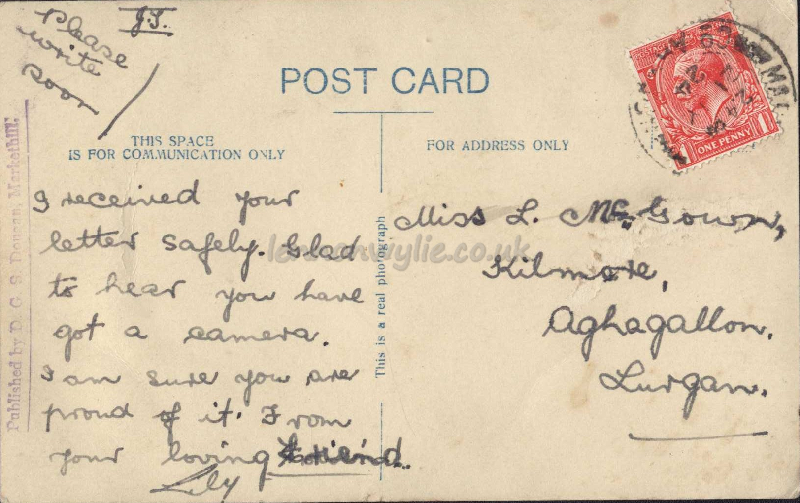 Please
write
soon
J.S.
POST CARD
THIS SPACE
IS FOR COMMUNICATION ONLY
FOR ADDRESS ONLY
ONE PENNY
I received your
letter safely. Glad
to hear you have
got a camera.
I am sure you are
proud of it. From
your loving friend.
Lily
Miss L. McGown,
Kilmore,
Aghagallon.
Lurgan.
This is a real photograph
Published by D. G. S. Dougan, Markethill.
lennonwylie.co.uk